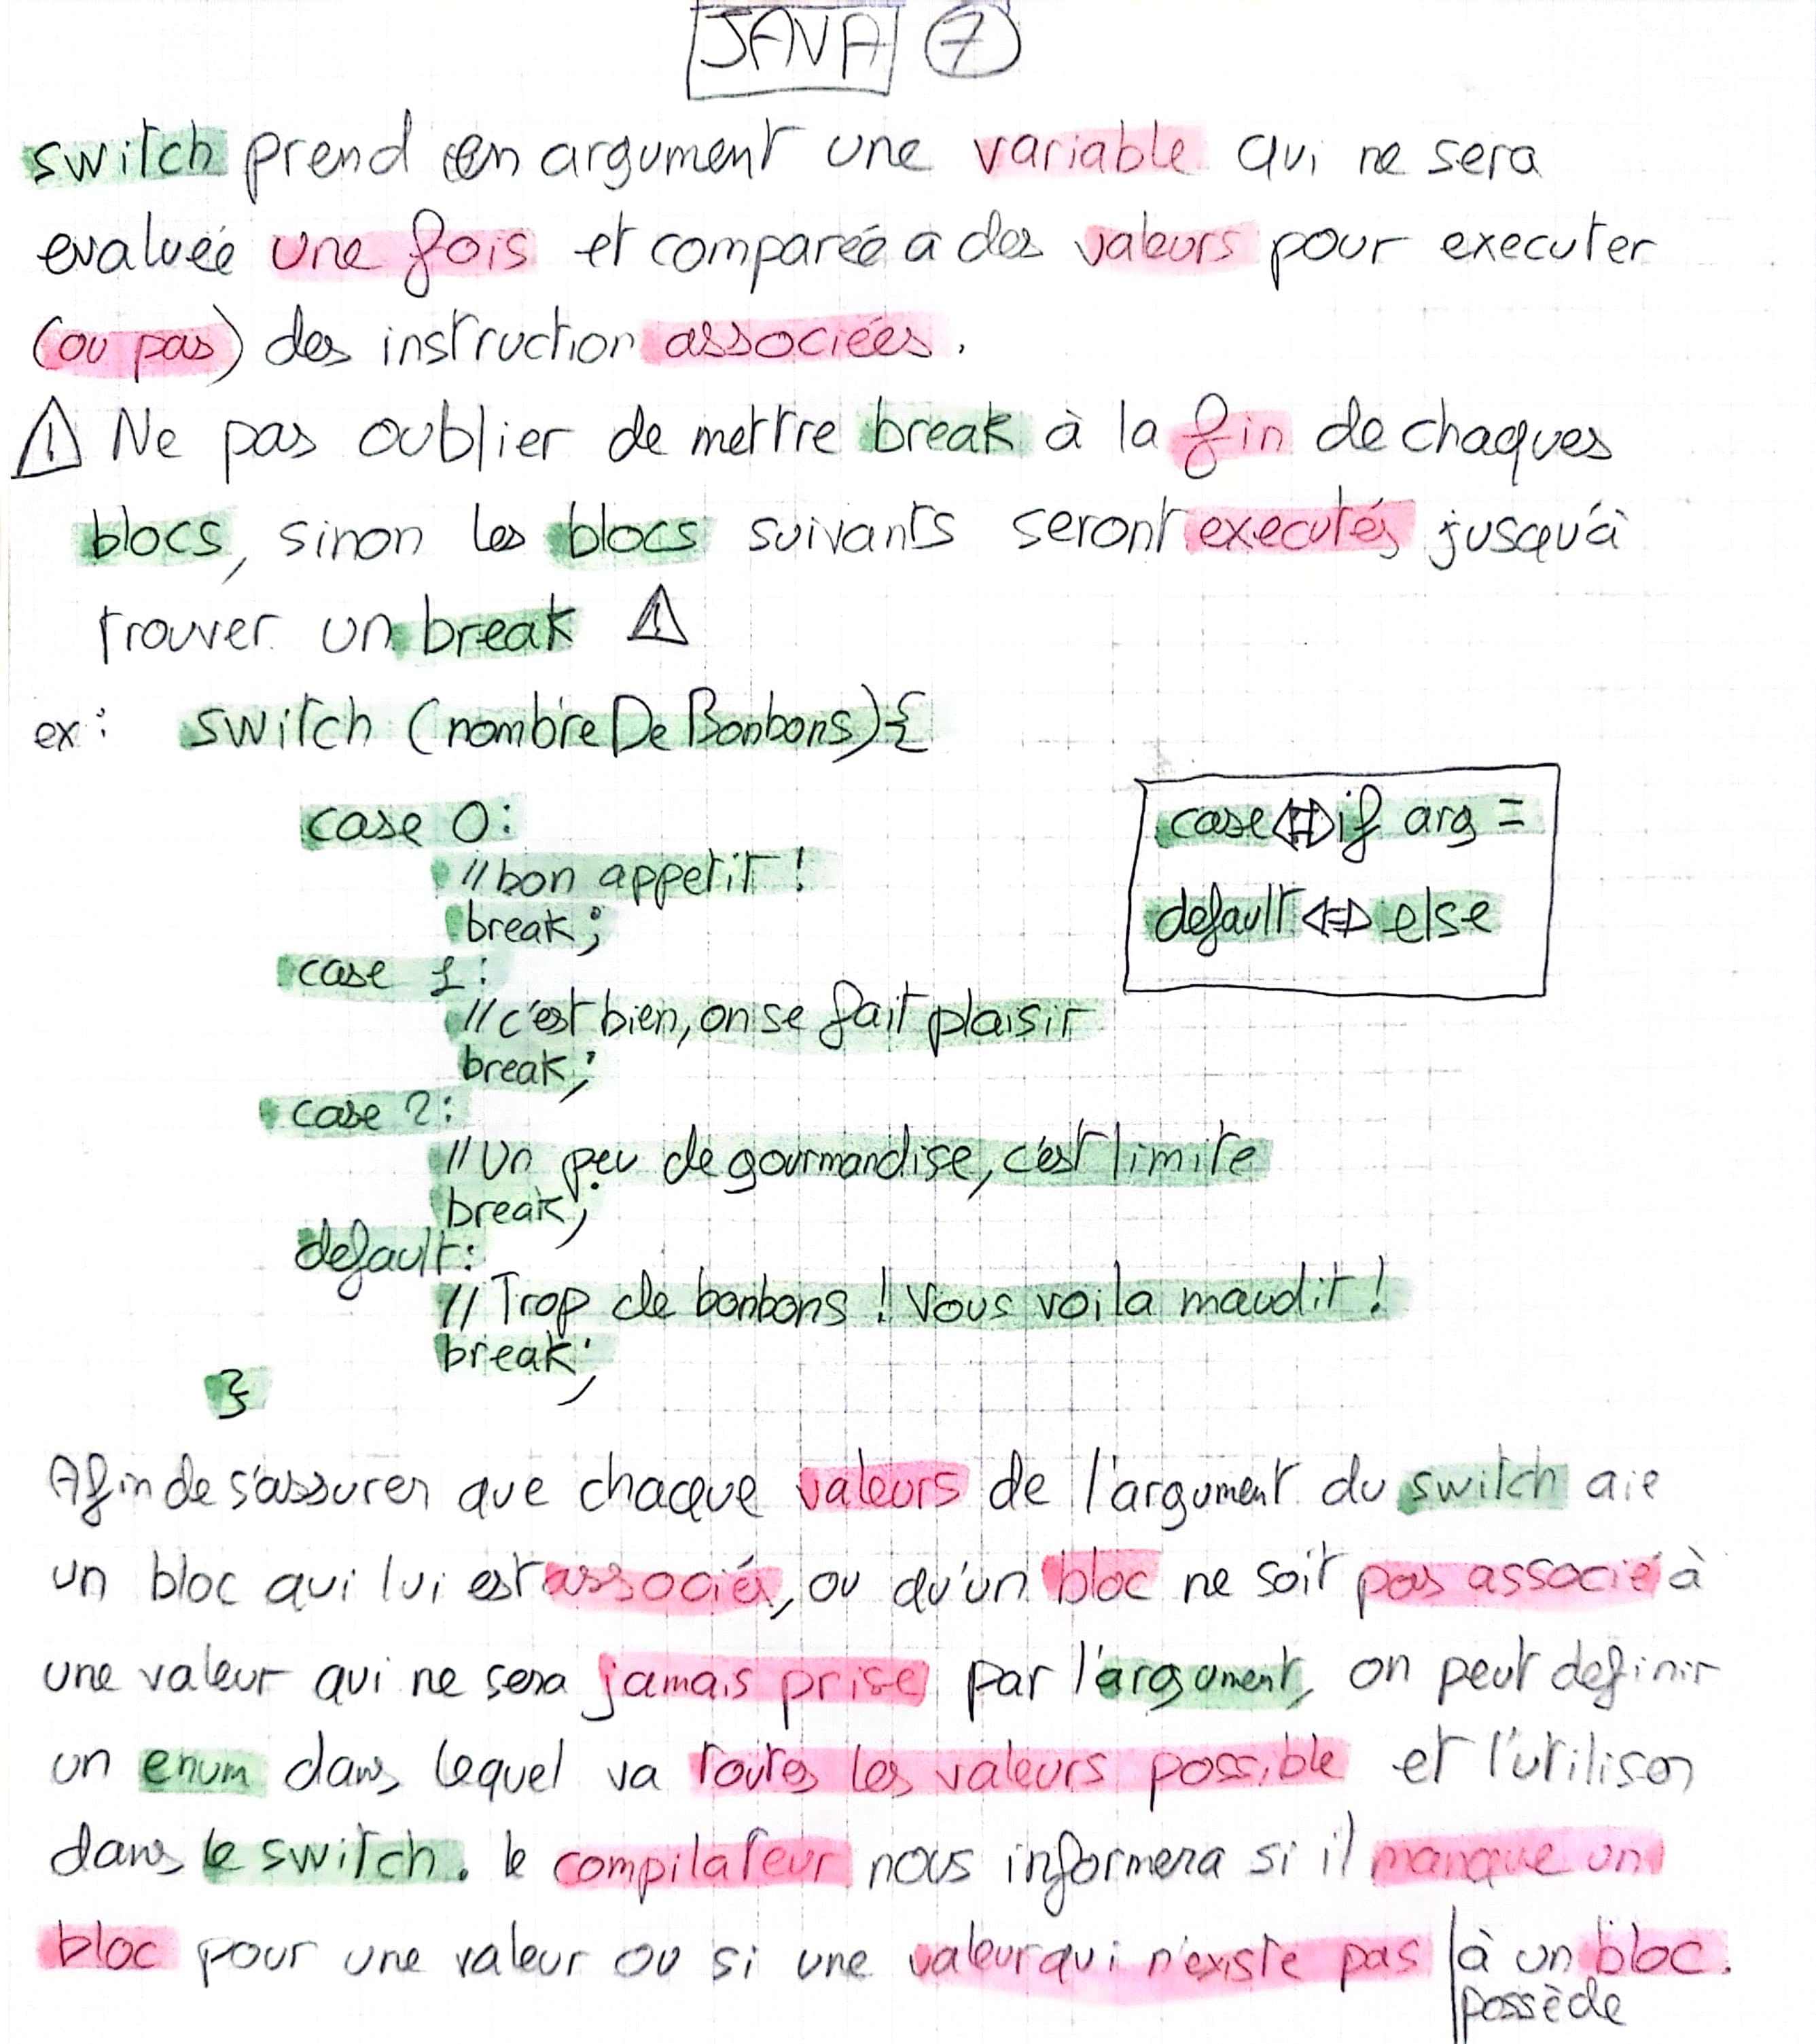 JAVA 7
switch prend en argument une variable qui ne sera
evaluée une fois et comparée a des valeurs pour executer
(ou pas) des instruction associées.
⚠ Ne pas oublier de mettre break à la fin de chaques
blocs, sinon les blocs suivants seront executés jusqu'à
trouver un break ⚠
ex: switch (nombreDeBonbons){
case 0:
//bon appetit !
break;
case 1:
//c'est bien, on se fait plaisir
break;
case 2:
//Un peu de gourmandise, c'est limite
break;
default:
// Trop de bonbons ! Vous voila maudit !
break;
}
case ⇔ if arg =
default ⇔ else
Afin de s'assurer que chaque valeurs de l'argument du switch aie
un bloc qui lui est associés, ou qu'un bloc ne soit pas associé à
une valeur qui ne sera jamais prise par l'argument, on peut definir
un enum dans lequel va toutes les valeurs possible et l'utiliser
dans le switch. le compilateur nous informera si il manque un
bloc pour une valeur ou si une valeur qui n'existe pas | à un bloc.
possède